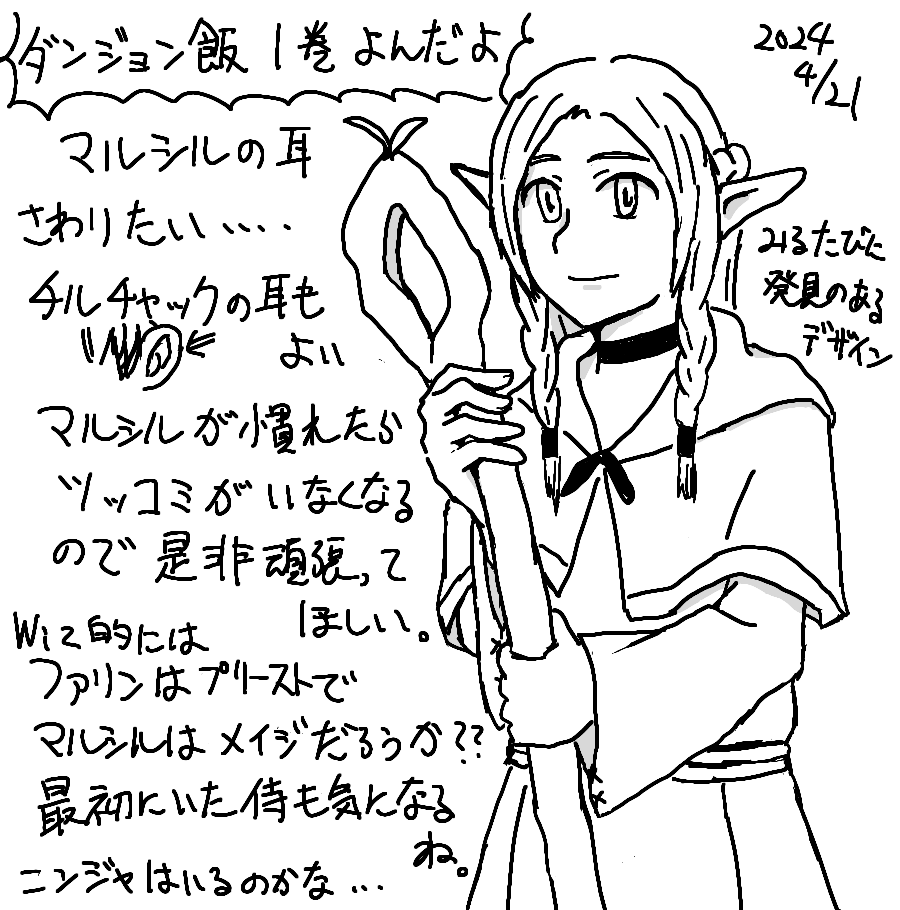 ダンジョン飯 1巻 よんだよ
2024
4/21
マルシルの耳
さわりたい....
チルチャックの耳も
よい
マルシルが慣れたら
ツッコミがいなくなる
ので是非頑張って
ほしい。
Wiz的には
ファリンはプリーストで
マルシルはメイジだろうか??
最初にいた侍も気になる
ね。
ニンジャはいるのかな...
みるたびに
発見のある
デザイン